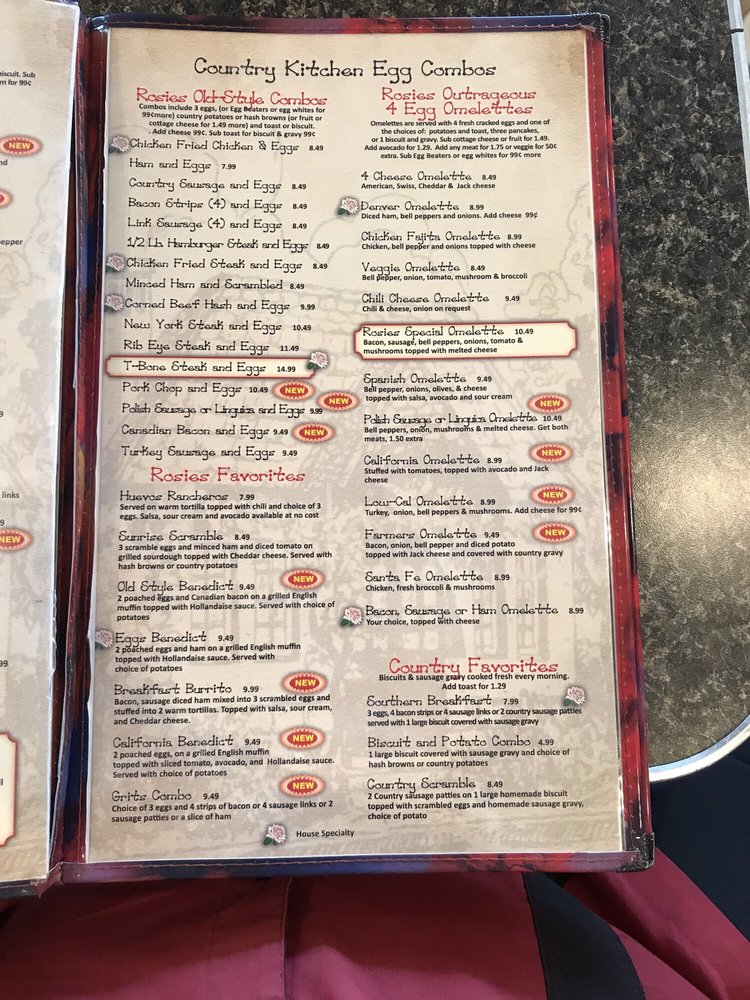 iscuit. Sub
m for 99¢
NEW
nd
epper
9
links
9
NEW
99
ll
Country Kitchen Egg Combos
Rosies Old-Style Combos
Combos include 3 eggs, (or Egg Beaters or egg whites for
99¢more) country potatoes or hash browns (or fruit or
cottage cheese for 1.49 more) and toast or biscuit.
. Add cheese 99¢. Sub toast for biscuit & gravy 99¢
Chicken Fried Chicken & Eggs 8.49
Ham and Eggs 7.99
Country Sausage and Eggs 8.49
Bacon Strips (4) and Eggs 8.49
Link Sausage (4) and Eggs 8.49
1/2 Lb. Hamburger Steak and Eggs 8.49
Chicken Fried Steak and Eggs 8.49
Minced Ham and Scrambled 8.49
Corned Beef Hash and Eggs 9.99
New York Steak and Eggs 10.49
Rib Eye Steak and Eggs 11.49
T-Bone Steak and Eggs 14.99
Pork Chop and Eggs 10.49 NEW
Polish Sausage or Linguica and Eggs 9.99 NEW
Canadian Bacon and Eggs 9.49 NEW
Turkey Sausage and Eggs 9.49
Rosies Favorites
Huevos Rancheros 7.99
Served on warm tortilla topped with chili and choice of 3
eggs. Salsa, sour cream and avocado available at no cost
Sunrise Scramble 8.49
3 scramble eggs and minced ham and diced tomato on
grilled sourdough topped with Cheddar cheese. Served with
hash browns or country potatoes
Old Style Benedict 9.49 NEW
2 poached eggs and Canadian bacon on a grilled English
muffin topped with Hollandaise sauce. Served with choice of
potatoes
Eggs Benedict 9.49
2 poached eggs and ham on a grilled English muffin
topped with Hollandaise sauce. Served with
choice of potatoes
Breakfast Burrito 9.99 NEW
Bacon, sausage diced ham mixed into 3 scrambled eggs and
stuffed into 2 warm tortillas. Topped with salsa, sour cream,
and Cheddar cheese.
California Benedict 9.49 NEW
2 poached eggs, on a grilled English muffin
topped with sliced tomato, avocado, and Hollandaise sauce.
Served with choice of potatoes
Grits Combo 9.49 NEW
Choice of 3 eggs and 4 strips of bacon or 4 sausage links or 2
sausage patties or a slice of ham
House Specialty
Rosies Outrageous
4 Egg Omelettes
Omelettes are served with 4 fresh cracked eggs and one of
the choices of: potatoes and toast, three pancakes,
or 1 biscuit and gravy. Sub cottage cheese or fruit for 1.49.
Add avocado for 1.29. Add any meat for 1.75 or veggie for 50¢
extra. Sub Egg Beaters or egg whites for 99¢ more
4 Cheese Omelette 8.49
American, Swiss, Cheddar & Jack cheese
Denver Omelette 8.99
Diced ham, bell peppers and onions. Add cheese 99¢
Chicken Fajita Omelette 8.99
Chicken, bell pepper and onions topped with cheese
Veggie Omelette 8.49
Bell pepper, onion, tomato, mushroom & broccoli
Chili Cheese Omelette 9.49
Chili & cheese, onion on request
Rosies Special Omelette 10.49
Bacon, sausage, bell peppers, onions, tomato &
mushrooms topped with melted cheese
Spanish Omelette 9.49
Bell pepper, onions, olives, & cheese
topped with salsa, avocado and sour cream
NEW
Polish Sausage or Linguica Omelette 10.49
Bell peppers, onion, mushrooms & melted cheese. Get both
meats, 1.50 extra
California Omelette 8.99 NEW
Stuffed with tomatoes, topped with avocado and Jack
cheese
Low-Cal Omelette 8.99 NEW
Turkey, onion, bell peppers & mushrooms. Add cheese for 99¢
Farmers Omelette 9.49 NEW
Bacon, onion, bell pepper and diced potato
topped with Jack cheese and covered with country gravy
Santa Fe Omelette 8.99
Chicken, fresh broccoli & mushrooms
Bacon, Sausage or Ham Omelette 8.99
Your choice, topped with cheese
Country Favorites
Biscuits & sausage gravy cooked fresh every morning.
Add toast for 1.29
Southern Breakfast 7.99
3 eggs, 4 bacon strips or 4 sausage links or 2 country sausage patties
served with 1 large biscuit covered with sausage gravy
Biscuit and Potato Combo 4.99
1 large biscuit covered with sausage gravy and choice of
hash browns or country potatoes
Country Scramble 8.49
2 Country sausage patties on 1 large homemade biscuit
topped with scrambled eggs and homemade sausage gravy,
choice of potato